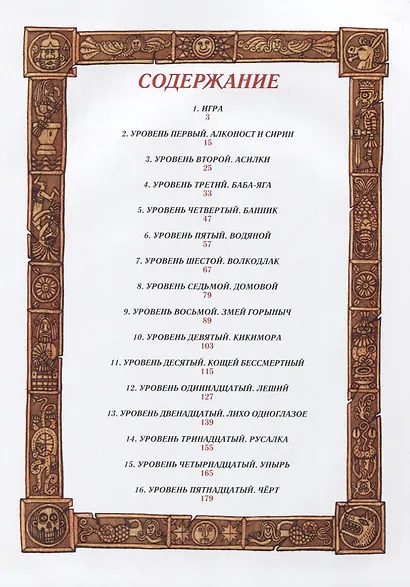 СОДЕРЖАНИЕ
1. ИГРА
3
2. УРОВЕНЬ ПЕРВЫЙ. АЛКОНОСТ И СИРИН
15
3. УРОВЕНЬ ВТОРОЙ. АСИЛКИ
25
4. УРОВЕНЬ ТРЕТИЙ. БАБА-ЯГА
33
5. УРОВЕНЬ ЧЕТВЕРТЫЙ. БАННИК
47
6. УРОВЕНЬ ПЯТЫЙ. ВОДЯНОЙ
57
7. УРОВЕНЬ ШЕСТОЙ. ВОЛКОДЛАК
67
8. УРОВЕНЬ СЕДЬМОЙ. ДОМОВОЙ
79
9. УРОВЕНЬ ВОСЬМОЙ. ЗМЕЙ ГОРЫНЫЧ
89
10. УРОВЕНЬ ДЕВЯТЫЙ. КИКИМОРА
103
11. УРОВЕНЬ ДЕСЯТЫЙ. КОЩЕЙ БЕССМЕРТНЫЙ
115
12. УРОВЕНЬ ОДИННАДЦАТЫЙ. ЛЕШИЙ
127
13. УРОВЕНЬ ДВЕНАДЦАТЫЙ. ЛИХО ОДНОГЛАЗОЕ
139
14. УРОВЕНЬ ТРИНАДЦАТЫЙ. РУСАЛКА
155
15. УРОВЕНЬ ЧЕТЫРНАДЦАТЫЙ. УПЫРЬ
165
16. УРОВЕНЬ ПЯТНАДЦАТЫЙ. ЧЁРТ
179